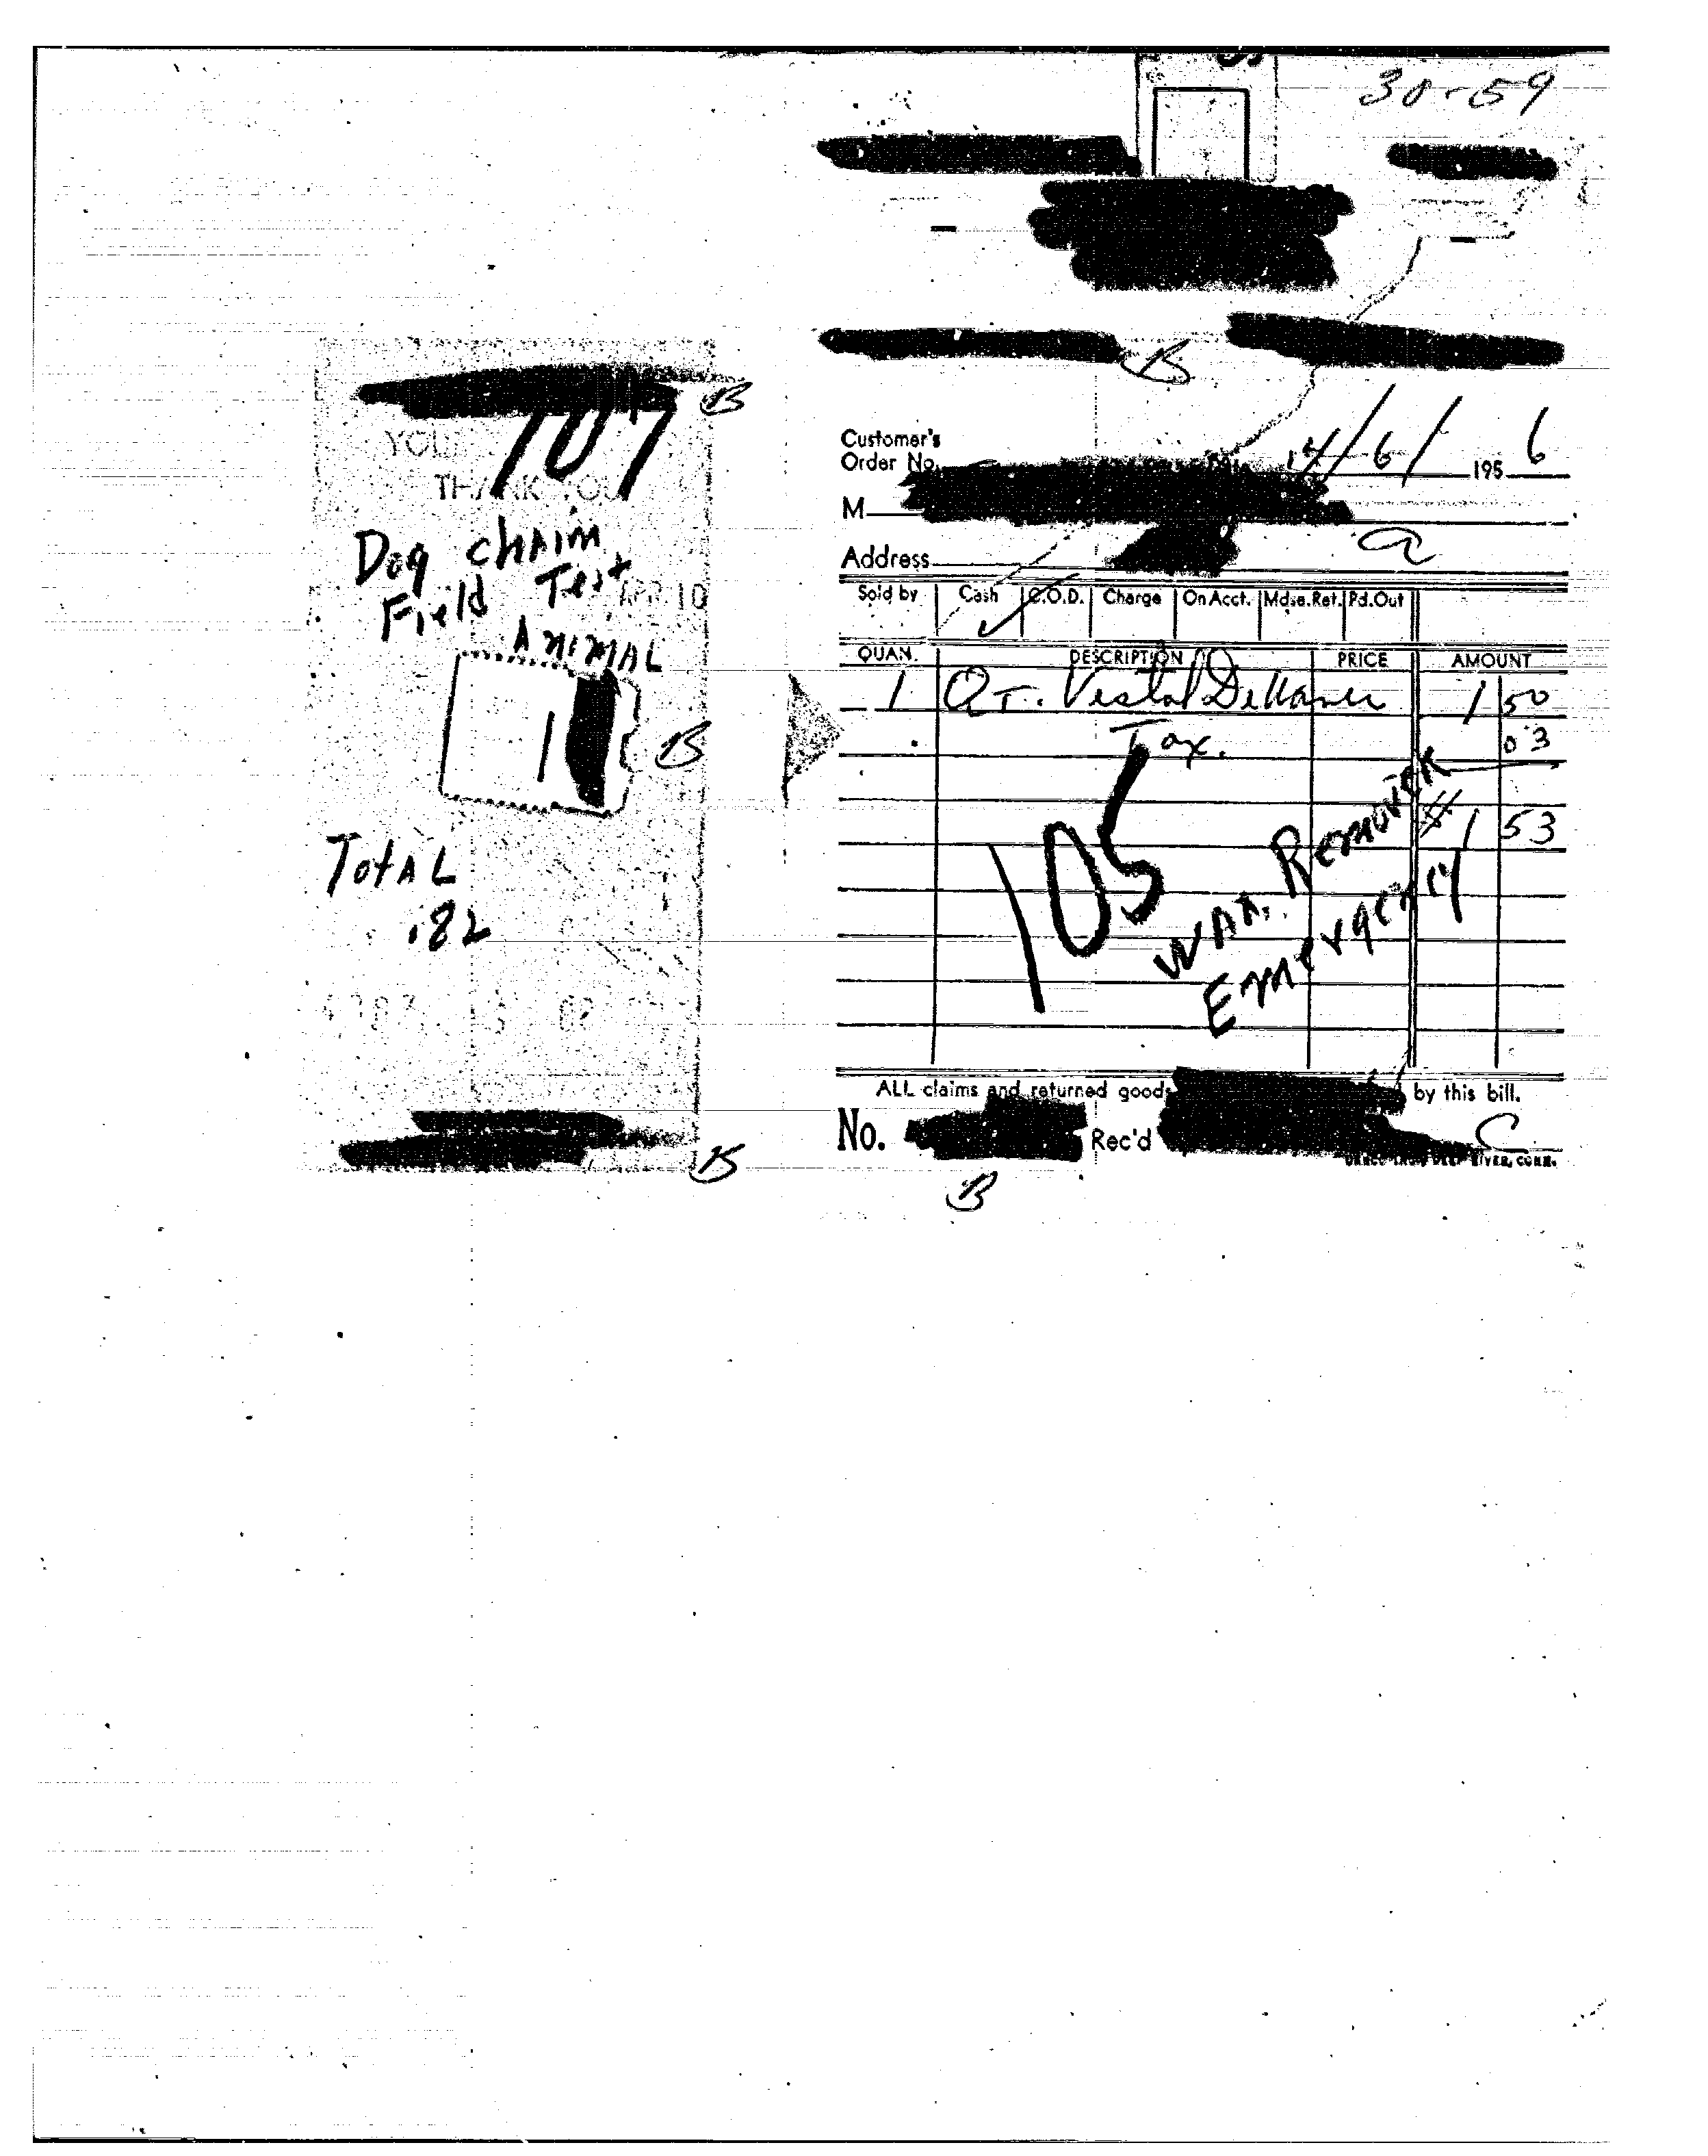 30-59
B
707
YOU
THANK YOU
Dog chain
Field Test
APR 10
ANIMAL
1
B
Total
.82
B
B
Customer's
Order No. 4/6/ 195 6
M
Address a
Sold by Cash C.O.D. Charge On Acct. Mdse. Ret. Pd. Out
QUAN. DESCRIPTION PRICE AMOUNT
1 QT. Vestal 1 50
Tax. 03
$1 53
105
WAX. Remover
Emergency
ALL claims and returned goods by this bill.
No. Rec'd C
RIVER, CONN.
B